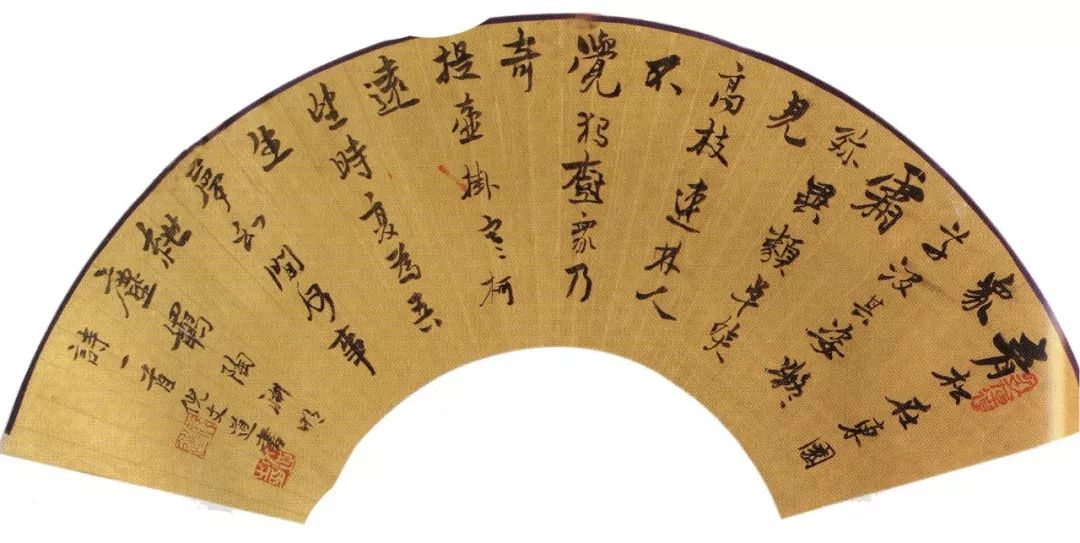 青松在東園
衆
草沒其姿凝
霜
殄異類卓然
見
高枝連林人
不
覺獨樹衆乃
奇
提壺掛寒柯
遠
望時復為吾
生
夢幻間何事
紲
塵羈陶淵明
詩一首倪文道書